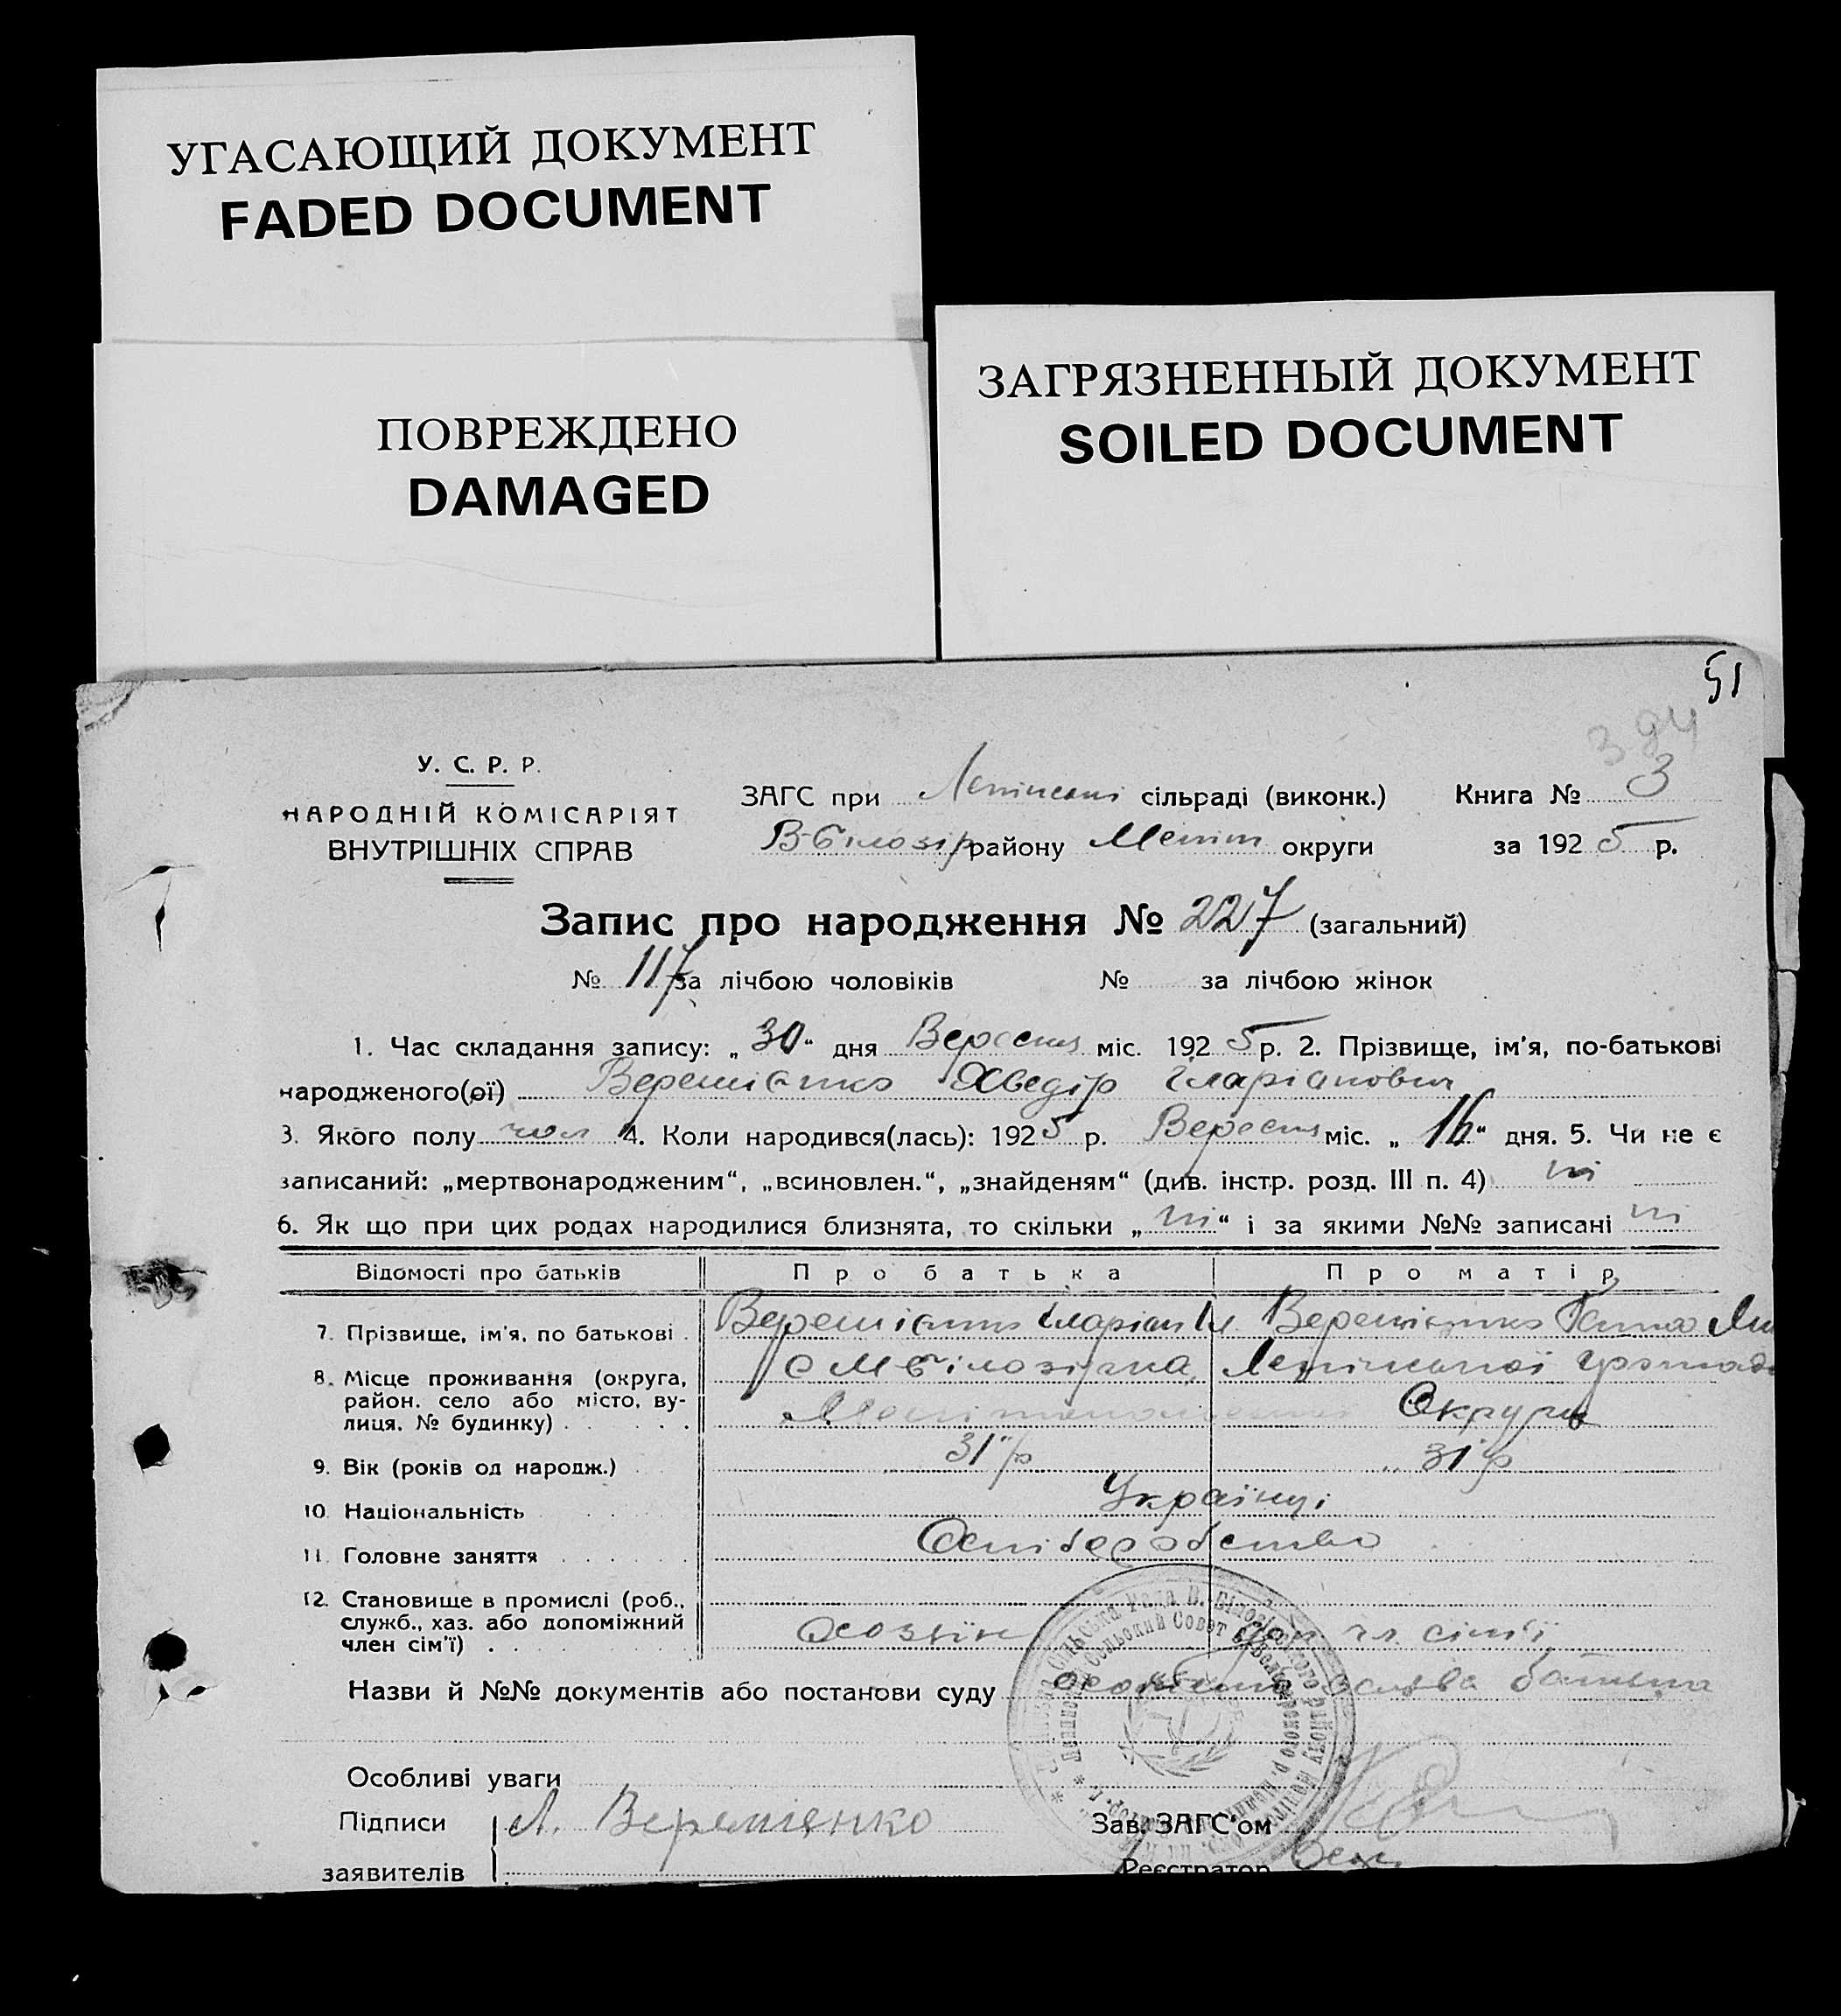 УГАСАЮЩИЙ ДОКУМЕНТ
FADED DOCUMENT
ПОВРЕЖДЕНО
DAMAGED
ЗАГРЯЗНЕННЫЙ ДОКУМЕНТ
SOILED DOCUMENT
51
394
У. С. Р. Р.
НАРОДНІЙ КОМІСАРІЯТ
ВНУТРІШНІХ СПРАВ
ЗАГС при сільраді (виконк.) Книга № 3
В-Білозір району Меліт округи за 1925 р.
Запис про народження № 227 (загальний)
№ 117 за лічбою чоловіків № за лічбою жінок
1. Час складання запису: „30“ дня Вересня міс. 1925 р. 2. Прізвище, ім'я, по-батькові
народженого(ої) Веремієнко Хведір Іларіанович
3. Якого полу чол 4. Коли народився(лась): 1925 р. Вересня міс. „16“ дня. 5. Чи не є
записаний: „мертвонародженим“, „всиновлен.“, „знайденям“ (див. інстр. розд. III п. 4) ні
6. Як що при цих родах народилися близнята, то скільки „ні“ і за якими №№ записані ні
Відомості про батьків Про батька Про матір
7. Прізвище, ім'я, по батькові Веремієнко Іларіан Веремієнко Ганна
8. Місце проживання (округа, район, село або місто, вулиця, № будинку) с М Білозірка, громади
Округи
9. Вік (років од народж.) 31 р 31 р
10 Національність Українці
11. Головне заняття
12. Становище в промислі (роб., служб., хаз. або допоміжний член сім'ї) Хозяїн чл. сім'ї
Назви й №№ документів або постанови суду заява батька
Особливі уваги
Підписи Л. Веремієнко Зав. ЗАГС'ом
заявителів Реєстратор